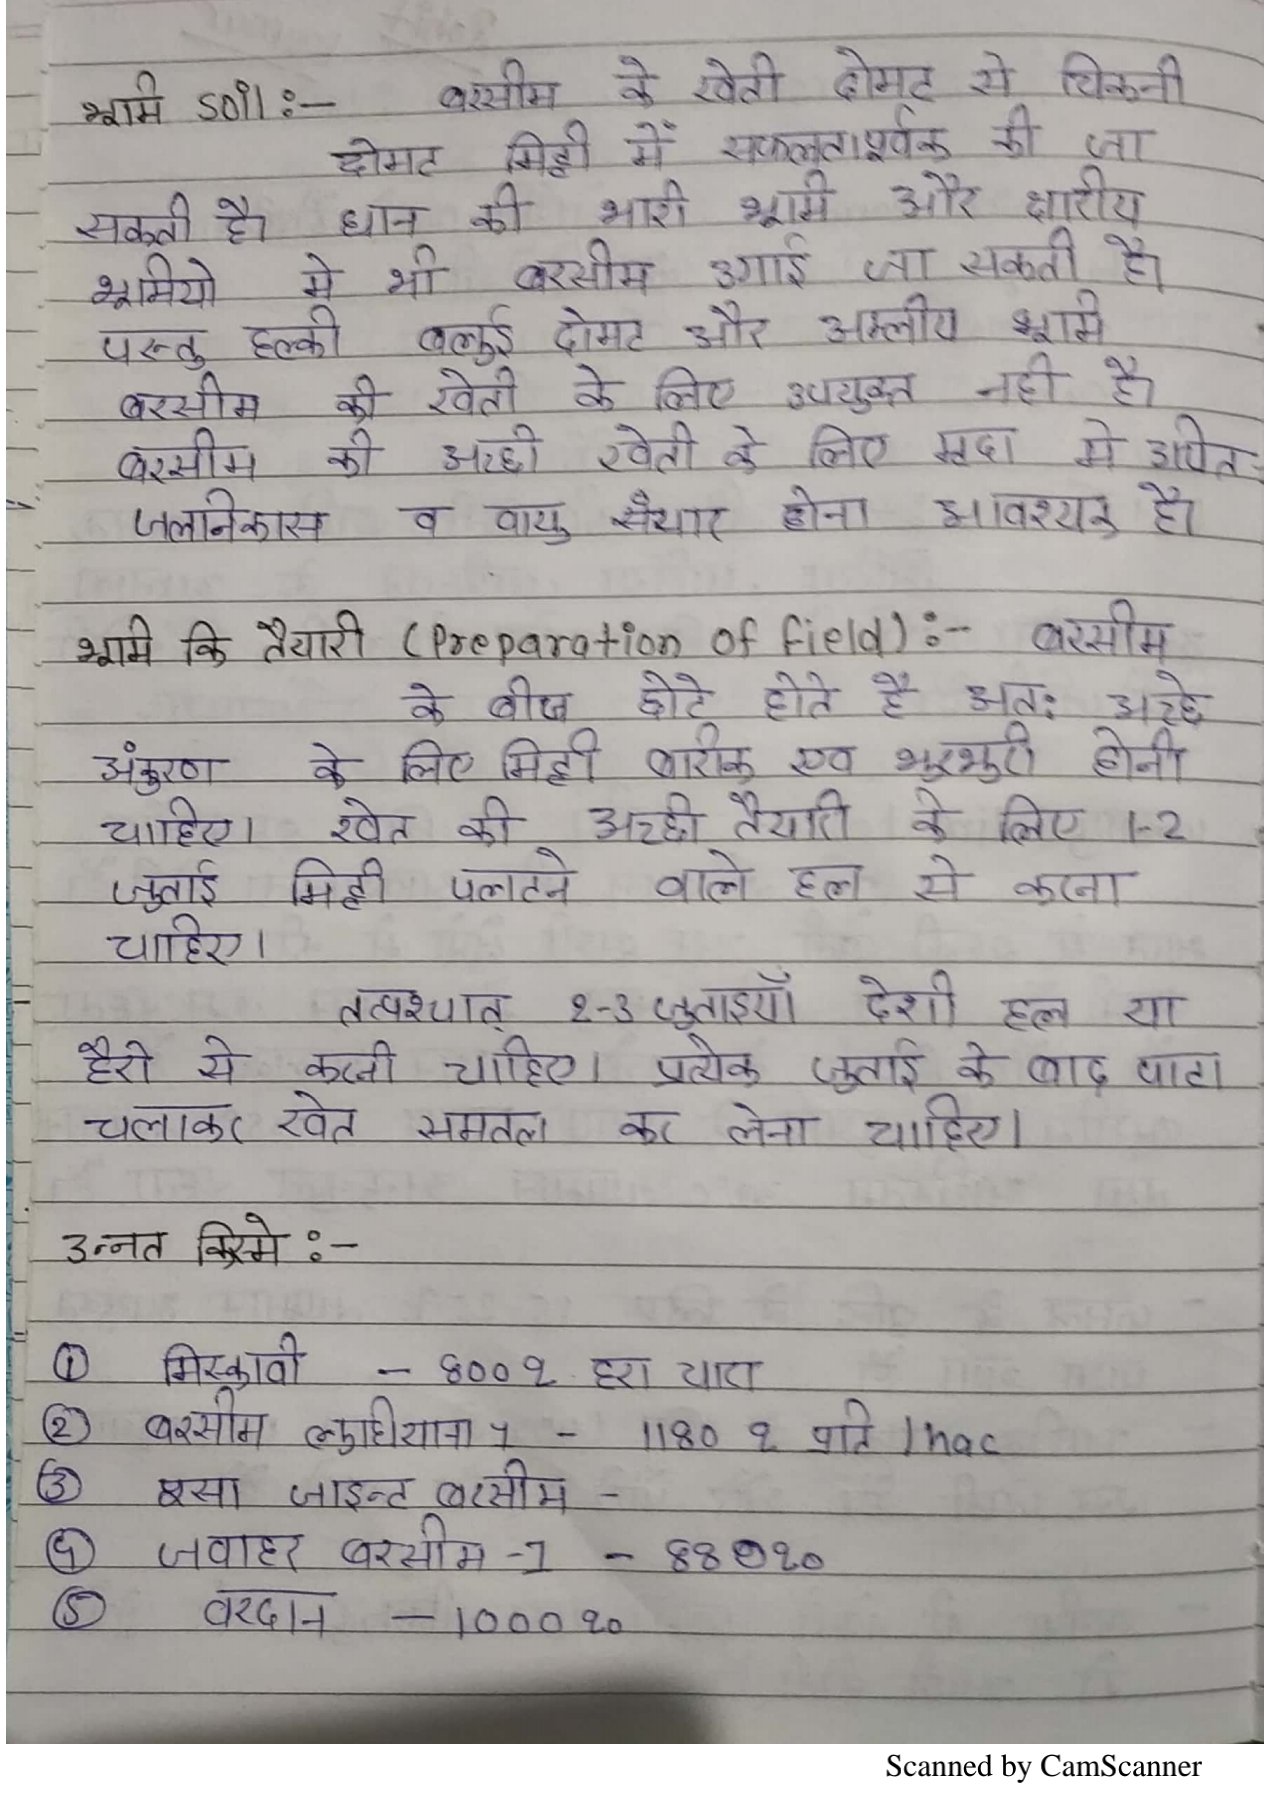 भूमि soil :- बरसीम के खेती दोमट से चिकनी
दोमट मिट्टी में सफलतापूर्वक की जा
सकती है। धान की भारी भूमि और क्षारीय
भूमियो मे भी बरसीम उगाई जा सकती है।
परन्तु हल्की बलुई दोमट और अम्लीय भूमि
बरसीम की खेती के लिए उपयुक्त नही है।
बरसीम की अच्छी खेती के लिए मृदा मे
जलनिकास व वायु सँचार होना आवश्यक है।
भूमि कि तैयारी (Preparation of field) :- बरसीम
के बीज छोटे होते है अतः अच्छे
अंकुरण के लिए मिट्टी बारीक एव भुरभुरी होनी
चाहिए। खेत की अच्छी तैयारी के लिए 1-2
जुताई मिट्टी पलटने वाले हल से करना
चाहिए।
तत्पश्चात् 2-3 जुताइयाँ देशी हल या
हैरो से करनी चाहिए। प्रत्येक जुताई के बाद पाटा
चलाकर खेत समतल कर लेना चाहिए।
उन्नत किस्मे :-
① मिस्कावी - 800 q हरा चारा
② बरसीम लुधियाना 1 - 1180 q प्रति / hac
③ जाइन्ट बरसीम -
④ जवाहर बरसीम -1 -
⑤ वरदान - 1000 q०
Scanned by CamScanner